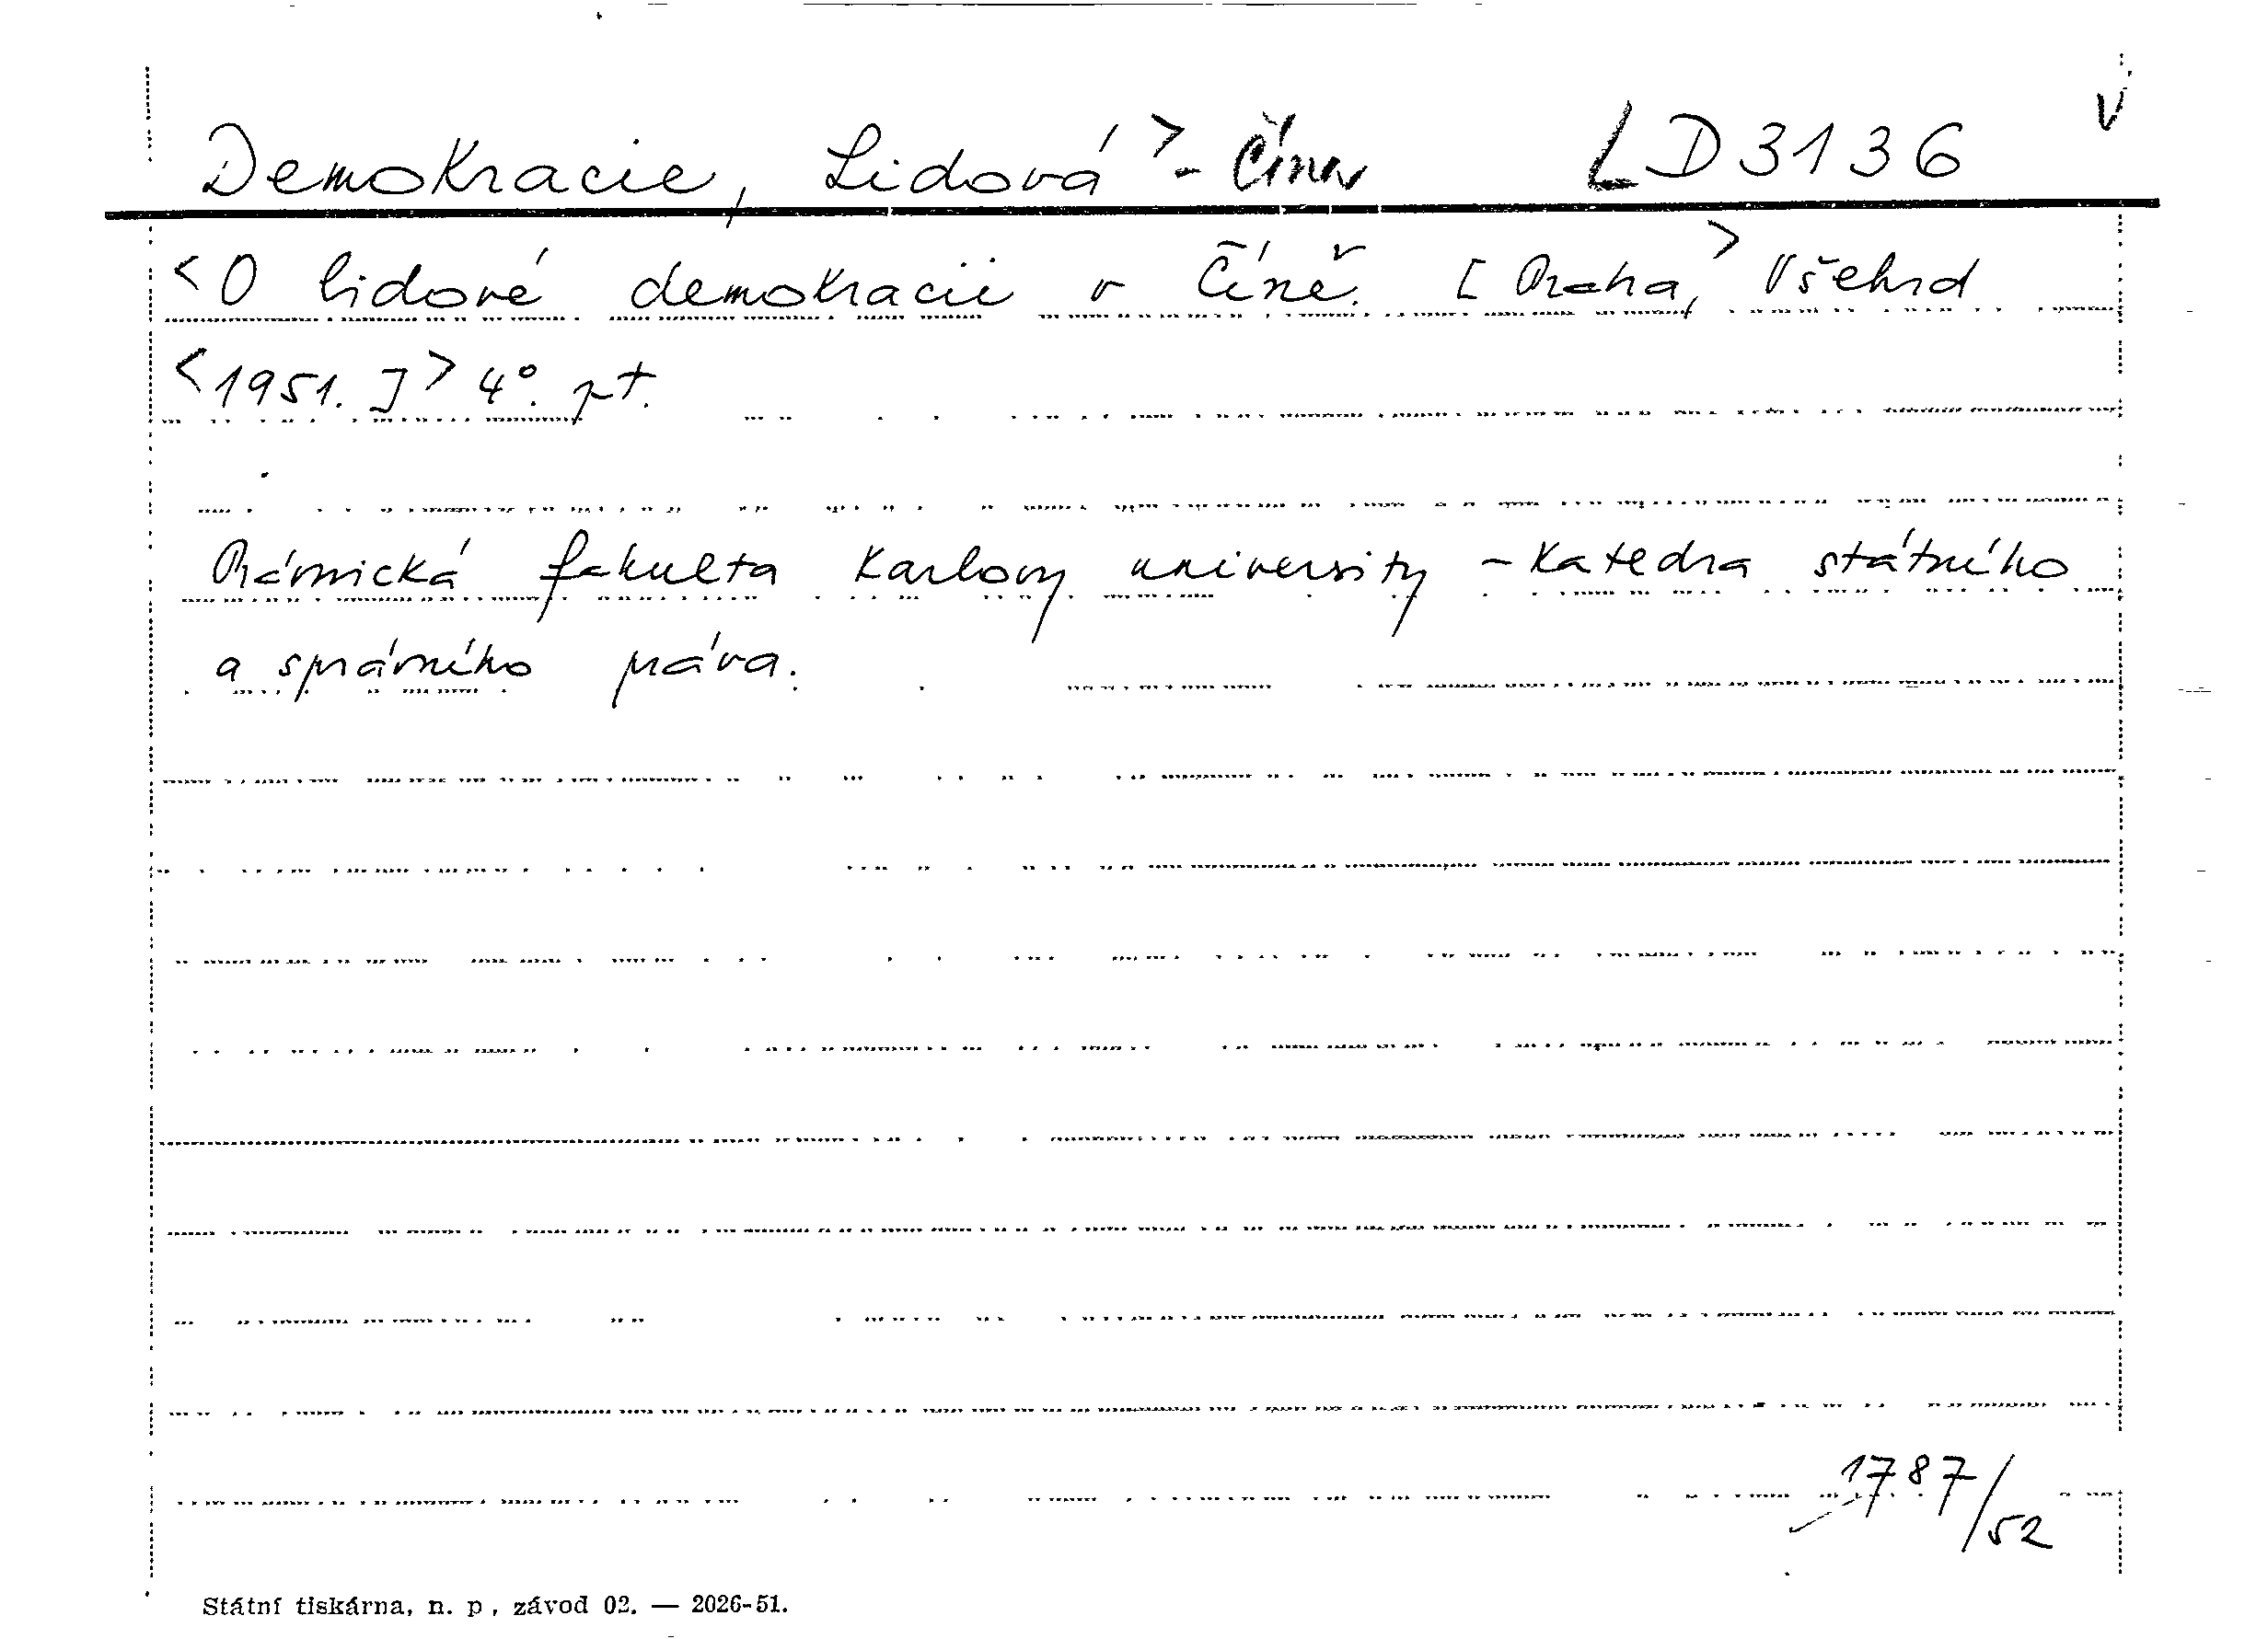 Demokracie, Lidová > - Čína LD3136 V
<O lidové demokracii v Číně. [Praha,> Všehrd
<1951.]> 4°. pt.
Právnická fakulta Karlovy university - Katedra státního
a správního práva.
1787/52
Státní tiskárna, n. p., závod 02. — 2026-51.